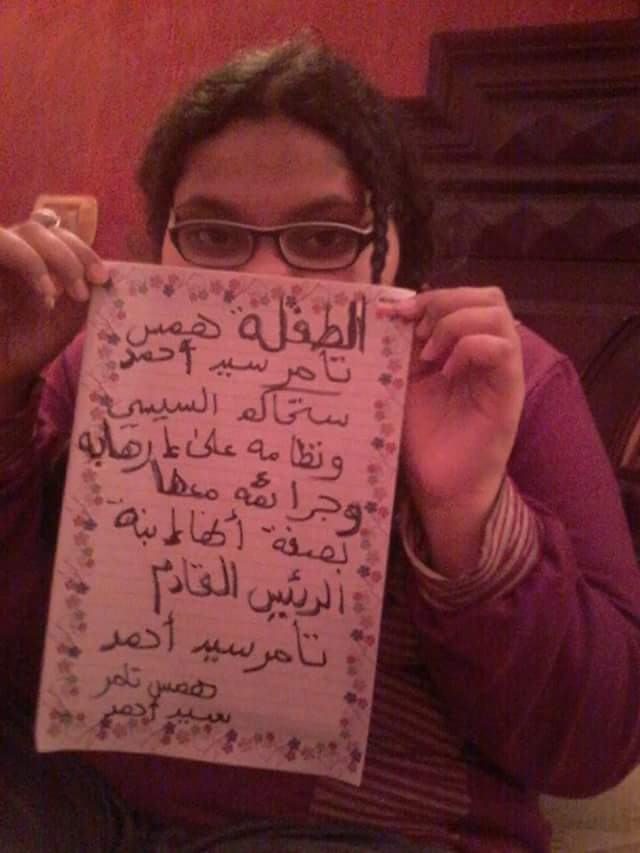 الطفلة همس
تامر سيد أحمد
ستحاكم السيسي
ونظامه على إرهابه
وجرائمه معها
بصفة أنها إبنة
الرئيس القادم
تامر سيد أحمد
همس تامر
سيد أحمد